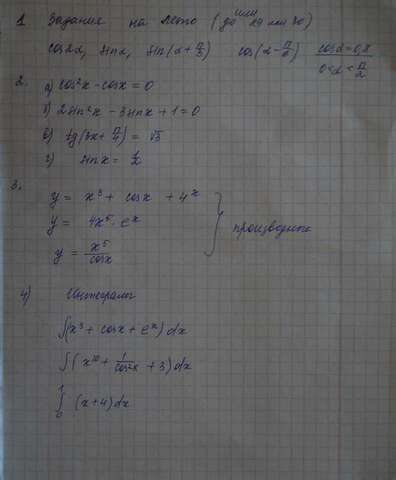 1 Задание на лето (до или 29 мая 30)
cos2α, sinα, sin(α+π/3) cos(α-π/6) cosα=0,8
0<α<π/2
2. а) cos²x-cosx=0
б) 2sin²x-3sinx+1=0
в) tg(3x+π/4)=√3
г) sinx=1/2
3.
y= x³+ cosx +4ˣ
y= 4x⁵·eˣ
производные
y= x⁵/cosx
4) Интегралы
∫(x³+cosx+eˣ)dx
∫(x¹⁰+1/cos²x+3)dx
∫₀¹ (x+4)dx